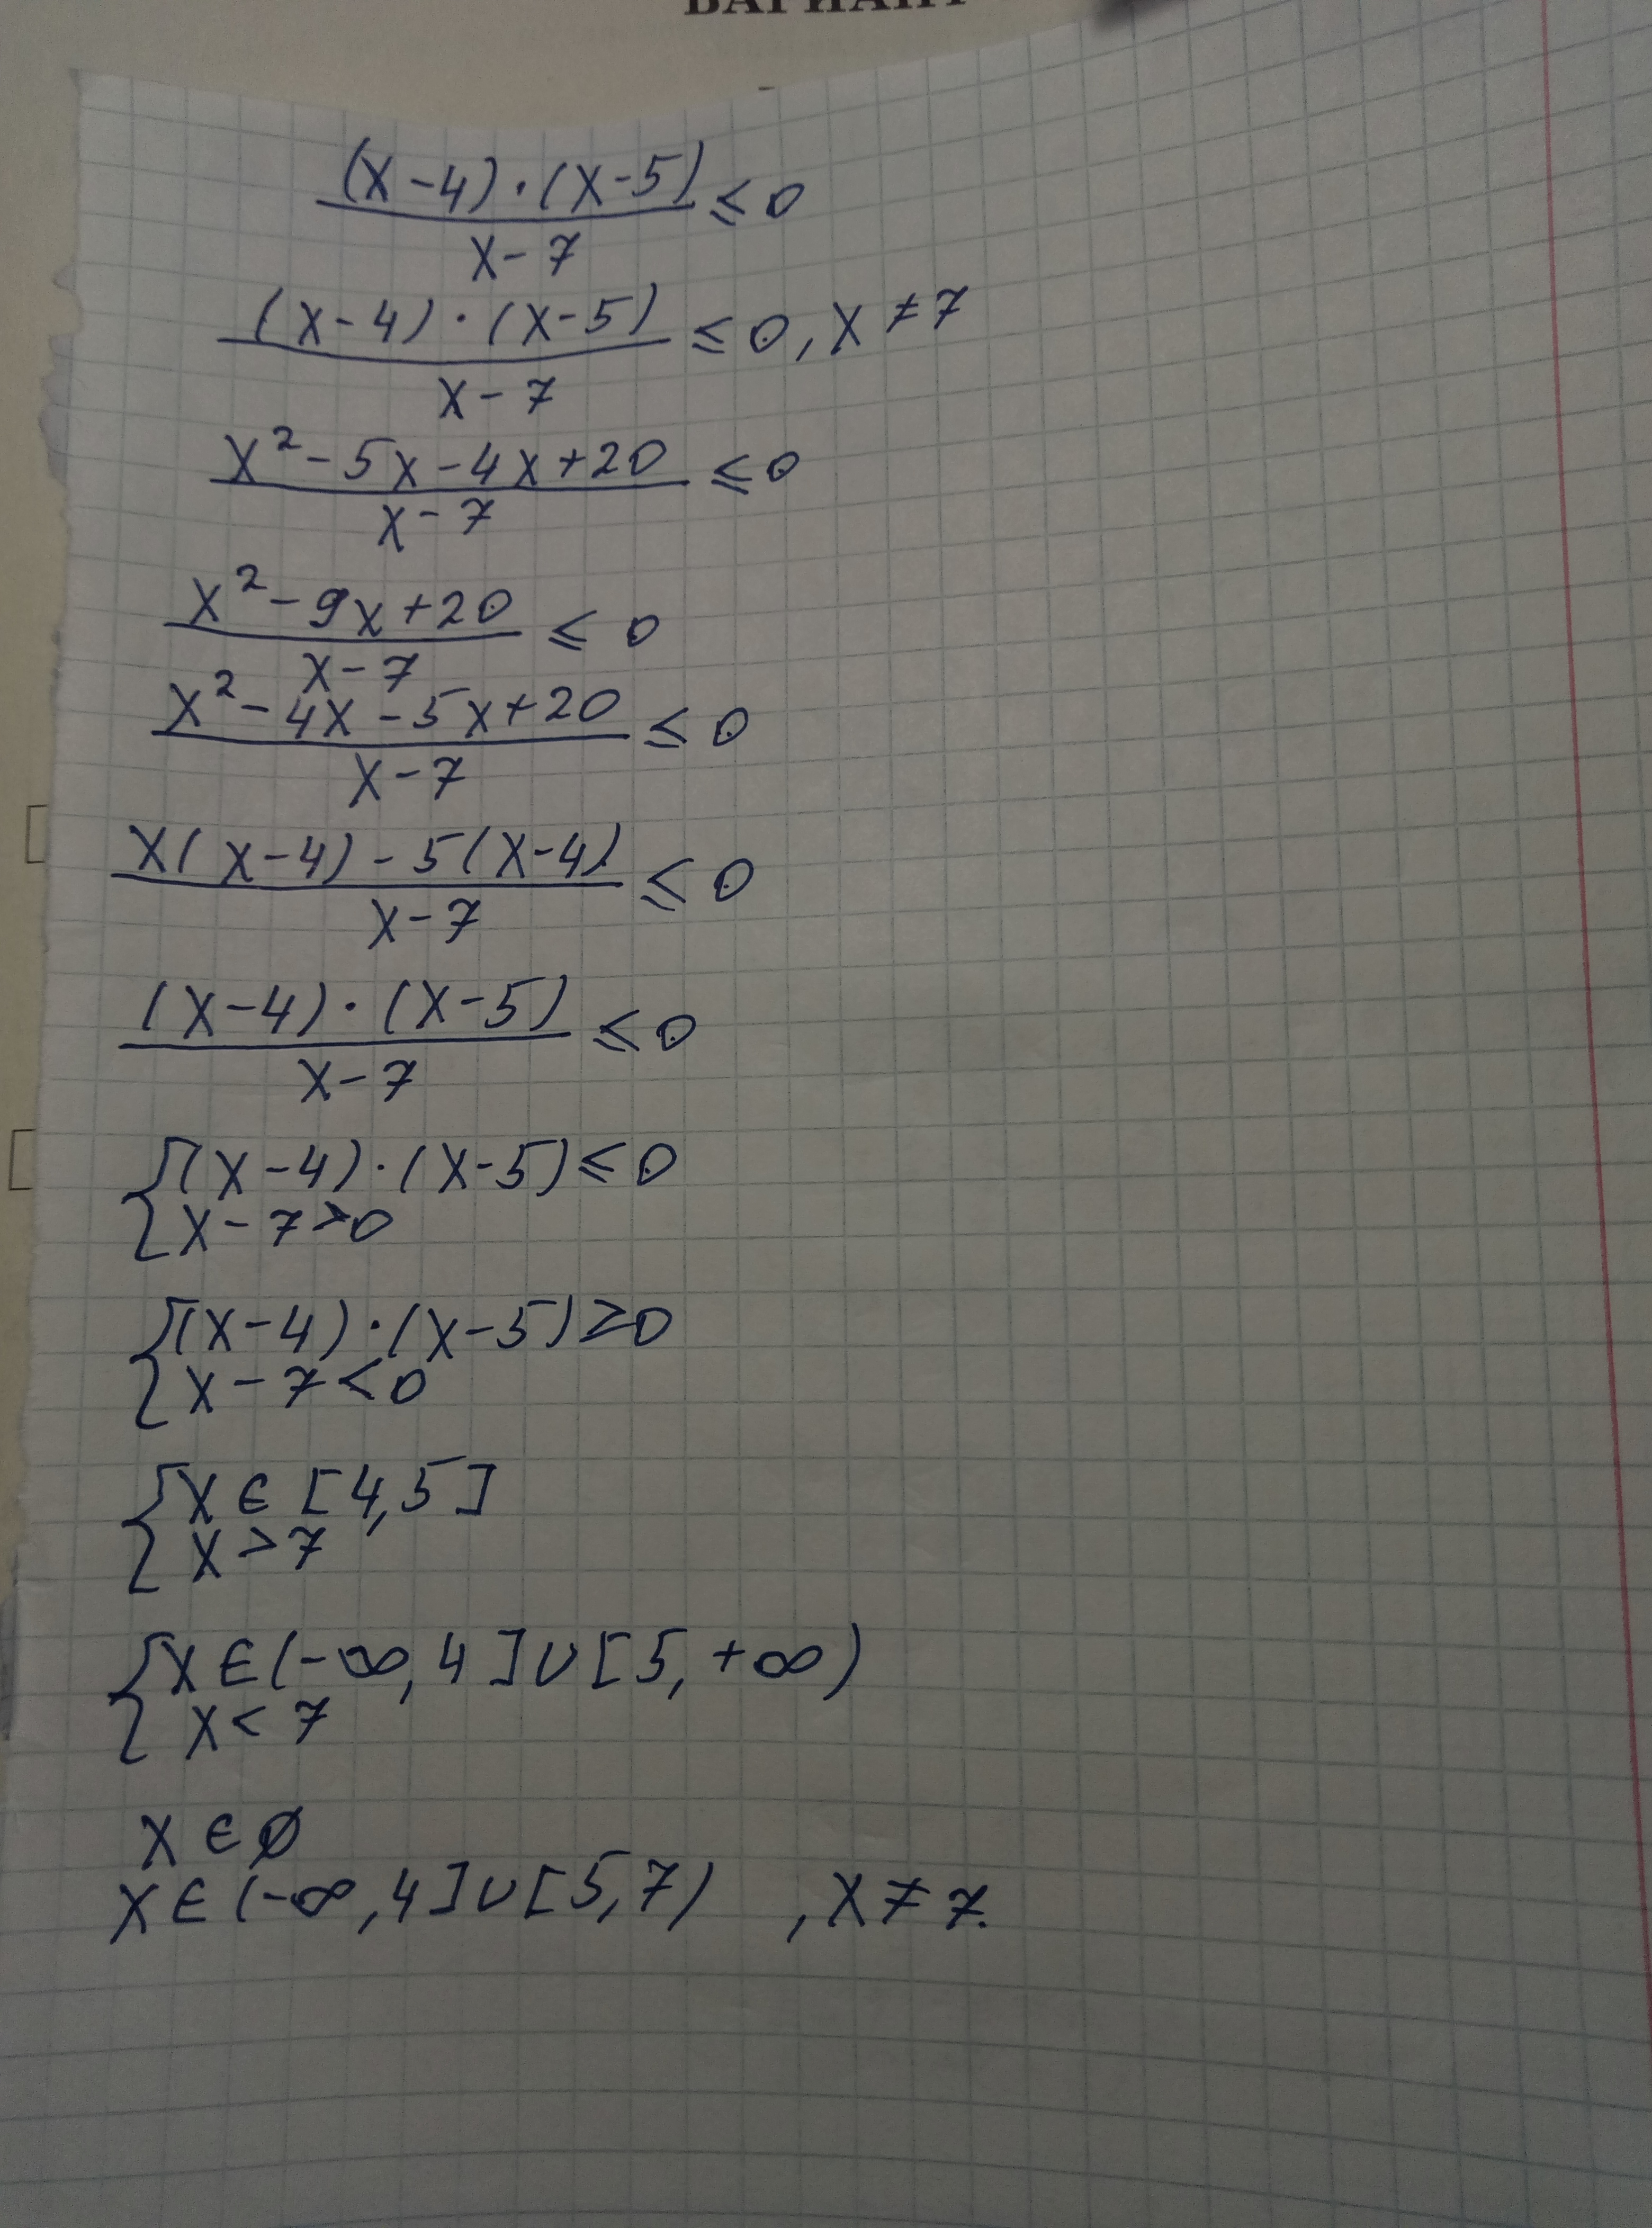 ВАРИАНТ
(x-4)·(x-5)/x-7 ≤ 0
(x-4)·(x-5)/x-7 ≤ 0, x ≠ 7
x²-5x-4x+20/x-7 ≤ 0
x²-9x+20/x-7 ≤ 0
x²-4x-5x+20/x-7 ≤ 0
x(x-4)-5(x-4)/x-7 ≤ 0
(x-4)·(x-5)/x-7 ≤ 0
{(x-4)·(x-5) ≤ 0
x-7 > 0
{(x-4)·(x-5) ≥ 0
x-7 < 0
{x ∈ [4,5]
x > 7
{x ∈ (-∞, 4] ∪ [5, +∞)
x < 7
x ∈ ∅
x ∈ (-∞, 4] ∪ [5, 7) , x ≠ 7.